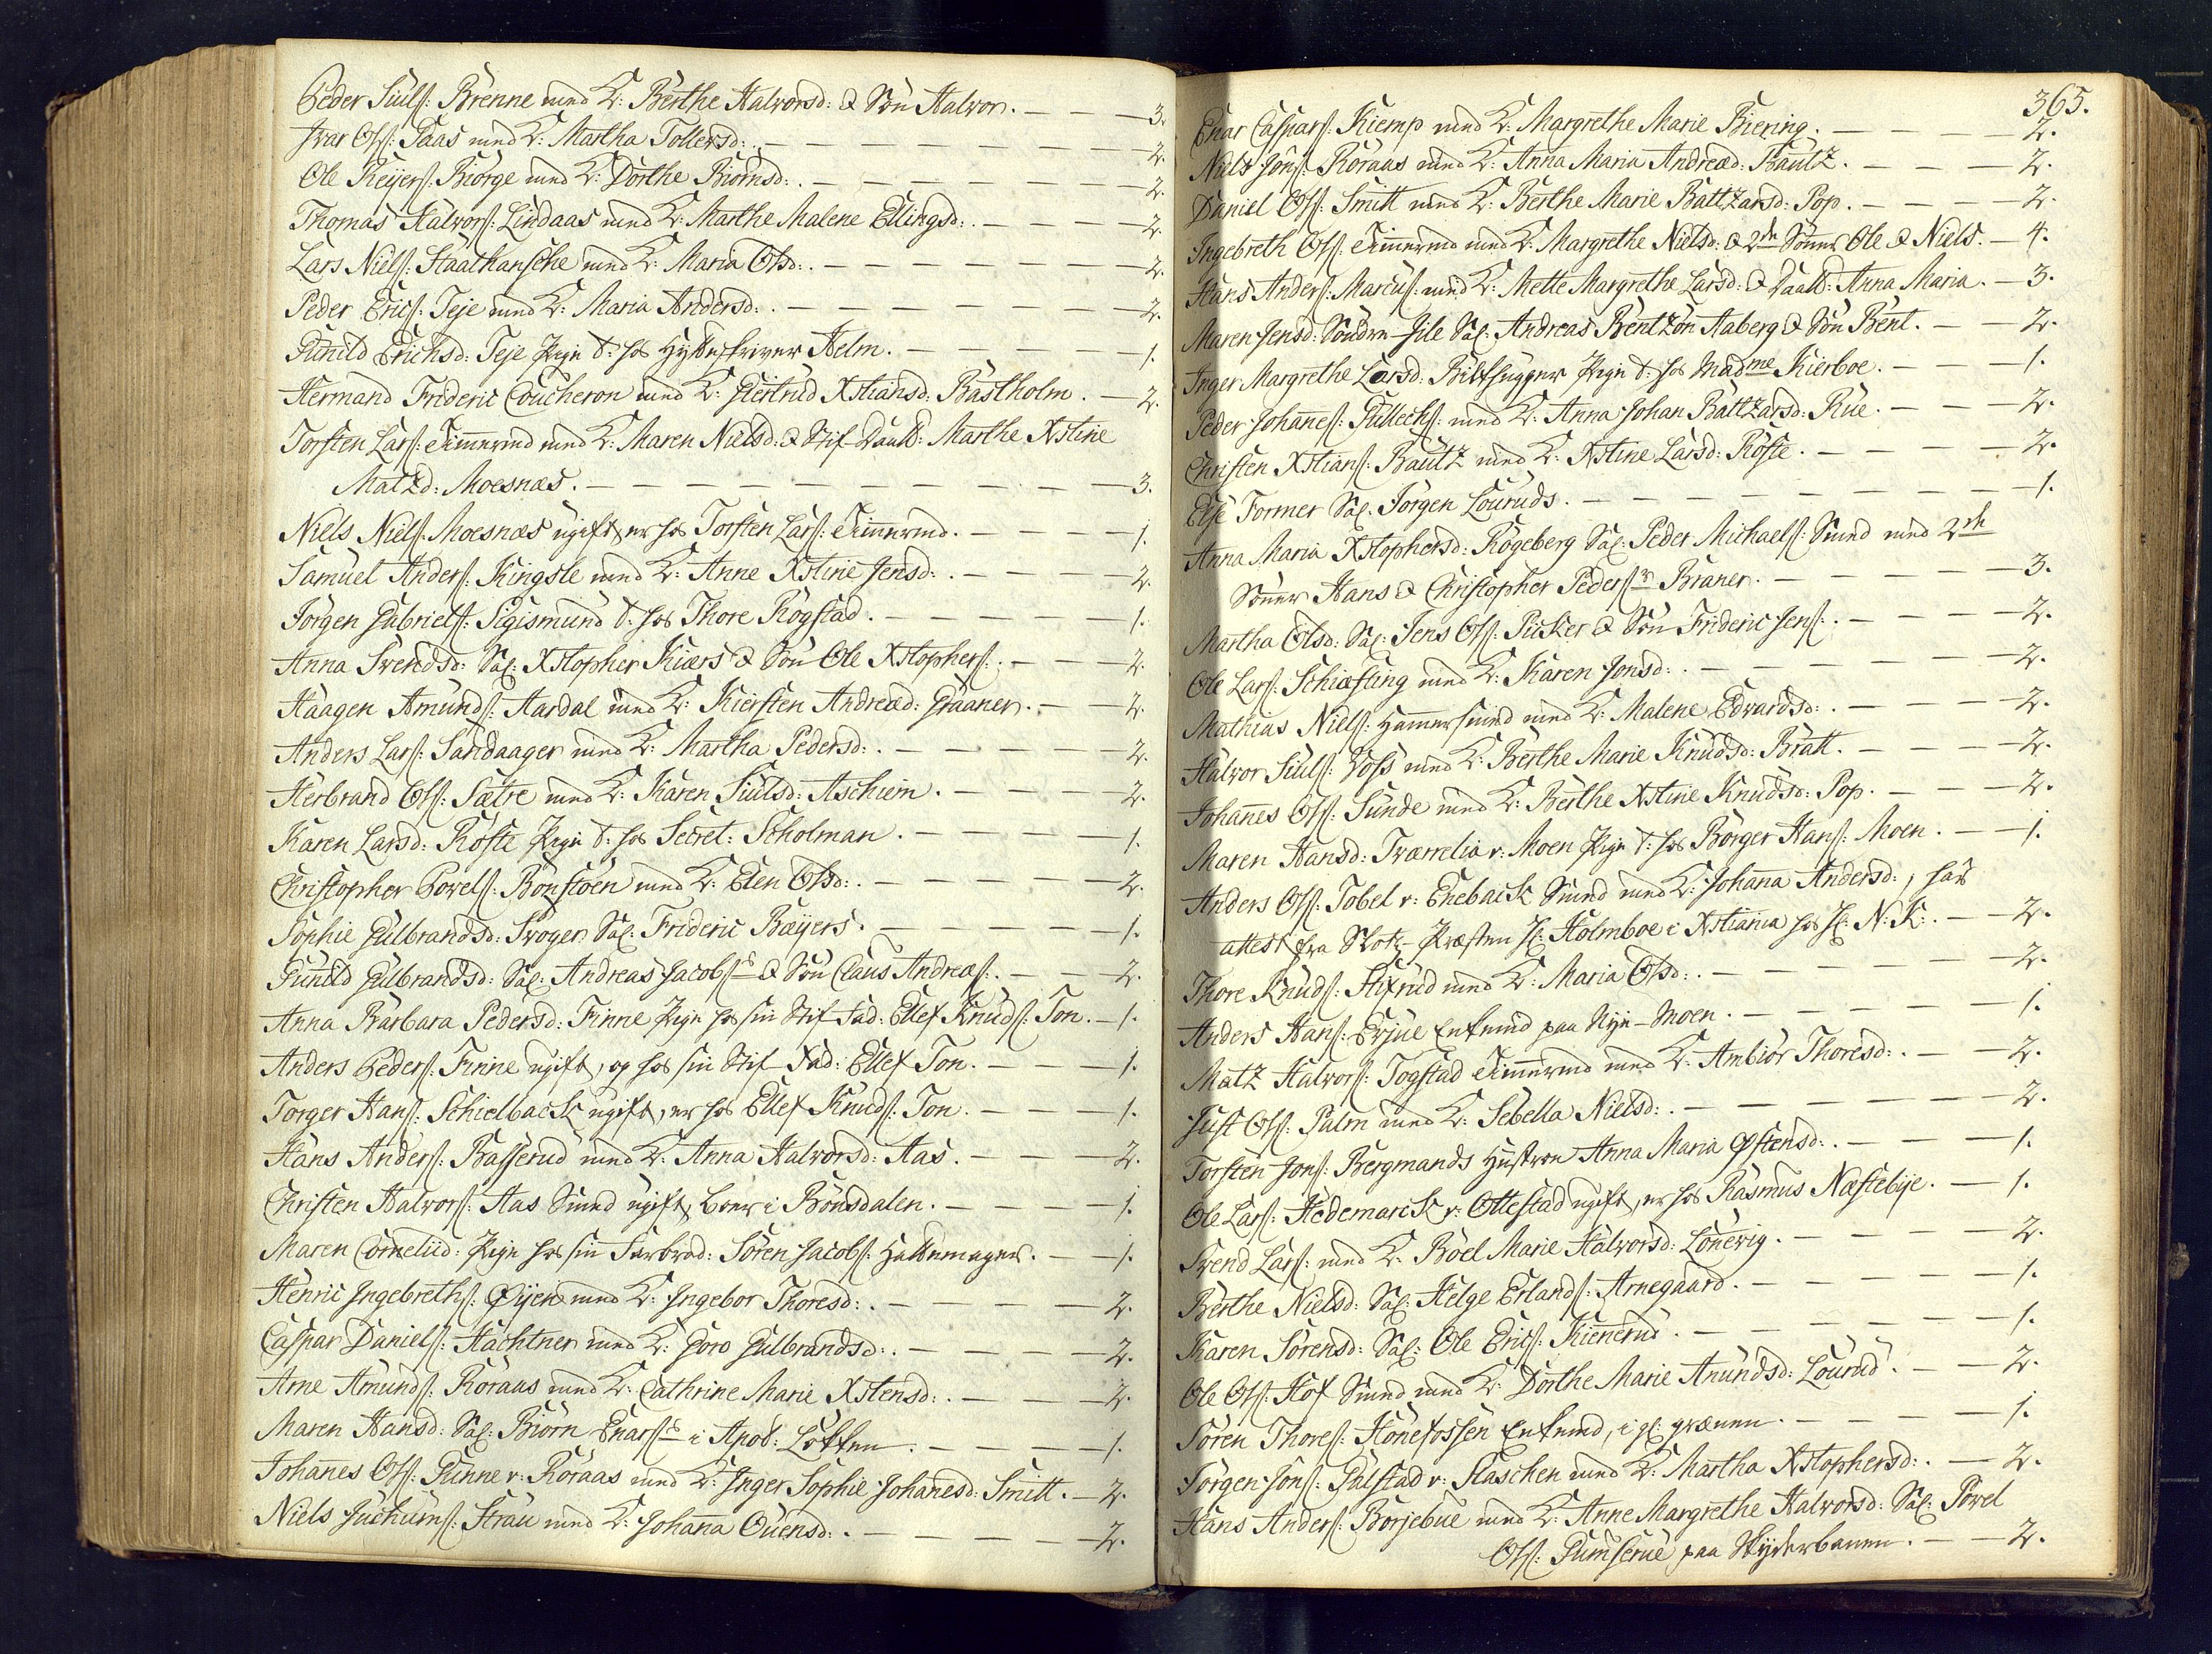 Peder Siuls: Brenne med K: Berthe Halvorsd: & Søn Halvor. — — — 3.
Ivar Ols: Paas med K: Martha Tollersd: — — — — — — — 2.
Ole Reijers: Biørge med K: Dorthe Biørnsd: . — — — — — — 2.
Thomas Halvors: Lindaas med K: Marthe Malene Ellingsd: . — — — — 2.
Lars Niels: Staalhansche med K: Maria Olsd: . — — — — — — 2.
Peder Erics: Teje med K: Maria Andersd: . — — — — — — 2.
Gunild Erichsd: Teje Pige t: hos Hytteskriver Helm. — — — — — 1.
Hermand Frideric Coucheron med K: Giertrud Xstiansd: Bastholm. — 2.
Torsten Lars: Tim̅ermd med K: Maren Nielsd: & Stif Datt: Marthe Xstine
Matzd: Moesnæs. — — — — — — — — — — 3.
Niels Niels: Moesnæs ugift, er hos Torsten Lars: Tim̅ermd. — — — — 1.
Samuel Anders: Kingsle med K: Anne Xstine Jensd: . — — — — 2.
Jørgen Gabriels: Sigismund t: hos Thore Rogstad. — — — — — 1.
Anna Svendsd: Sal: Xstopher Kiærs & Søn Ole Xstophers: . — — — 2.
Haagen Amunds: Aardal med K: Kiersten Andreæd: Graaner. — — — 2.
Anders Lars: Sandaager med K: Martha Pedersd: . — — — — — 2.
Herbrand Ols: Sætre med K: Karen Siulsd: Aschiem. — — — — 2.
Karen Larsd: Røste Pige t: hos Secret: Scholman. — — — — — 1.
Christopher Povels: Bønstøen med K: Elen Olsd: . — — — — — 2.
Sophie Gulbrandsd: Svoger Sal: Frideric Bæijers. — — — — — 1.
Gunild Gulbrandsd: Sal: Andreas Jacobs: & Søn Claus Andreæs: . — — 2.
Anna Barbara Pedersd: Finne Pige hos sin Stif Fad: Ellef Knuds: Ton. — 1.
Anders Peders: Finne ugift, og hos sin Stif-Fad: Ellef Ton. — — — 1.
Torger Hans: Schielbæck ugift, er hos Ellef Knuds: Ton. — — — 1.
Hans Anders: Basserud med K: Anna Halvorsd: Aas. — — — 2.
Christen Halvors: Aas Smed ugift, boer i Bønsdalen. — — — — 1.
Maren Corneliid: Pige hos sin Farbrod: Søren Jacobs: Hattemager. — — 1.
Henric Ingebreths: Øijen med K: Ingebor Thoresd: . — — — — — 2.
Caspar Daniels: Hachtner med K: Goro Gulbrandsd: . — — — — 2.
Arne Amunds: Røraas med K: Cathrine Marie Xstensd: . — — — — 2.
Maren Hansd: Sal: Biørn Enars: i Apot: Løkken. — — — — — 1.
Johan̅es Ols: Gun̅e v: Røraas med K: Inger Sophie Johan̅esd: Smitt. — 2.
Niels Juchums: Strau med K: Johan̅a Ouensd: . — — — — — 2.
365.
Enar Caspars: Kiemp med K: Margrethe Marie Biering. — — — — 2.
Niels Jons: Røraas med K: Anna Maria Andreæd: Bautz. — — — 2.
Daniel Ols: Smitt med K: Berthe Marie Baltzarsd: Pop. — — — 2.
Ingebreth Ols: Tim̅ermd med K: Margrethe Nielsd: & 2de Søn̅er Ole & Niels. — 4.
Hans Anders: Marcus: med K: Mette Margrethe Larsd: & Datt: Anna Maria. — 3.
Maren Jensd: Søndre-Jile Sal: Andreas Bentzon Aaberg & Søn Bent. — — 2.
Inger Margrethe Larsd: Bilthugger Pige t: hos Madme Kierboe. — — — 1.
Peder Johan̅es: Gullechs: med K: Anna Johan Baltzarsd: Rue. — — 2.
Christen Xstians: Bautz med K: Xstine Larsd: Røste. — — — — 2.
Else Former Sal: Jørgen Louruds. — — — — — — — — 1.
Anna Maria Xstophersd: Røgeberg Sal: Peder Michaels: Smed med 2de
Søn̅er Hans & Christopher Peders: Braner. — — — — — 3.
Martha Olsd: Sal: Jens Ols: Pucker & Søn Frideric Jens: . — — — 2.
Ole Lars: Schiæfting med K: Karen Jonsd: . — — — — — 2.
Mathias Niels: Ham̅ersmed med K: Malene Edvardsd: . — — — 2.
Halvor Siuls: Voss med K: Berthe Marie Knudsd: Bratt. — — — 2.
Johan̅es Ols: Sunde med K: Berthe Xstine Knudsd: Pop. — — — 2.
Maren Hansd: Tværrelia v: Moen Pige t: hos Børger Hans: Moen. — — 1.
Anders Ols: Tobel v: Enebaick Smed med K: Johan̅a Andersd: , har
attest fra Slotz-Præsten Hr: Holmboe i Xstiania hos Hr: N: K: . — — 2.
Thore Knuds: Stifrud med K: Maria Olsd: . — — — — — — 2.
Anders Hans: Erjue Enkemd paa Nye-Moen. — — — — — 1.
Matz Halvors: Togstad Tim̅ermd med K: Ambiør Thoresd: . — — 2.
Just Ols: Palm med K: Sebella Nielsd: . — — — — — 2.
Torsten Jons: Bergmands Hustroe Anna Maria Østensd: . — — — 1.
Ole Lars: Hedemarck v: Ottestad ugift, er hos Rasmus Næstebye. — 1.
Svend Lars: med K: Boel Marie Halvorsd: Lonevig. — — — — 2.
Berthe Nielsd: Sal: Helge Erlands: Arnegaard. — — — — — 1.
Karen Sørensd: Sal: Ole Erics: Kien̅erud. — — — — — — 1.
Ole Ols: Hof Smed med K: Dorthe Marie Anundsd: Lourud. — — 2.
Søren Thores: Hønefossen Enkemd, i gl: grænen. — — — — — 1.
Jørgen Jons: Gulstad v: Slaschen med K: Martha Xstophersd: . — — 2.
Hans Anders: Borjebue med K: Anne Margrethe Halvorsd: Sal: Povel
Ols: Gumserue paa Skyderbanen. — — 2.